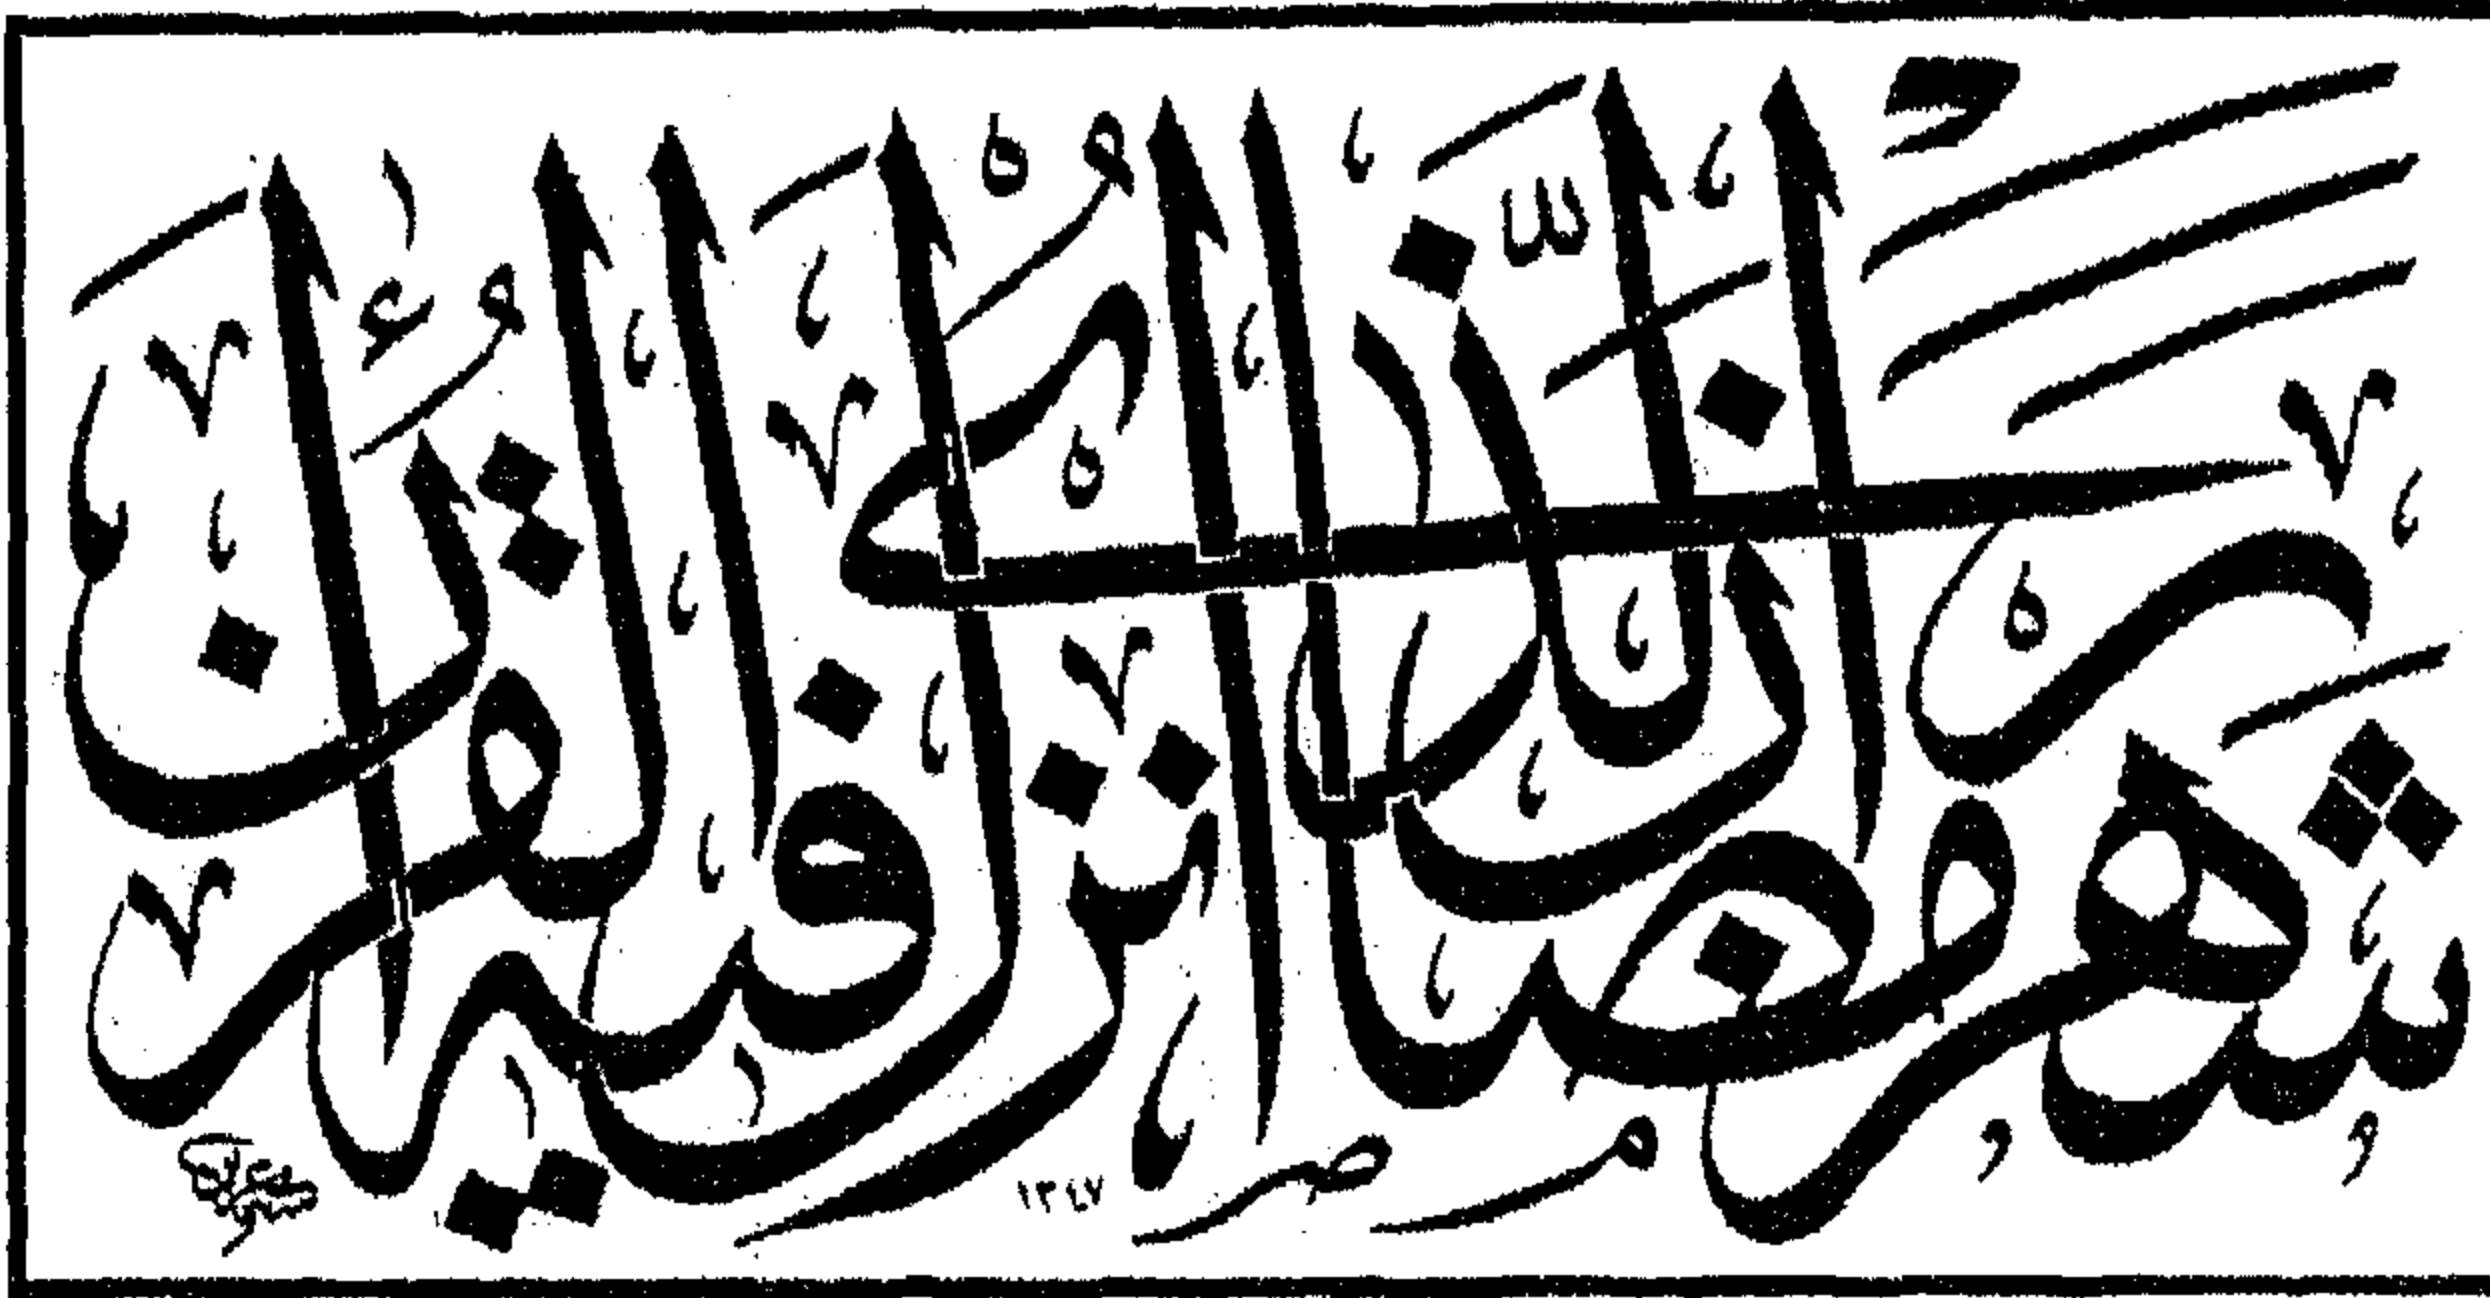 شَهْرُ رَمَضَانَ الَّذِي أُنْزِلَ فِيهِ الْقُرْآنُ
١٣٤٧